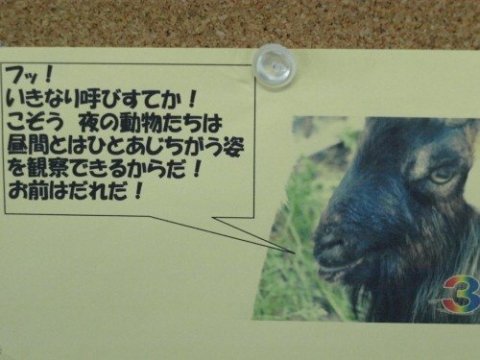 フッ!
いきなり呼びすてか!
こぞう 夜の動物たちは
昼間とはひとあじちがう姿
を観察できるからだ!
お前はだれだ!
3